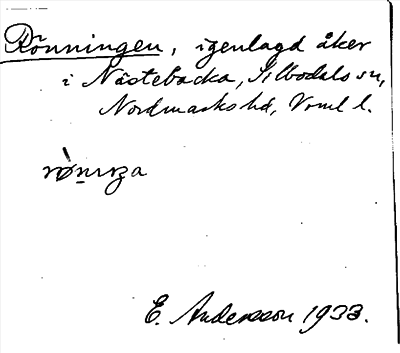 Rönningen, igenlagd åker
i Nästebacka, Silbodals sn,
Nordmarks hd, Vrml l.
E. Andersson 1933.